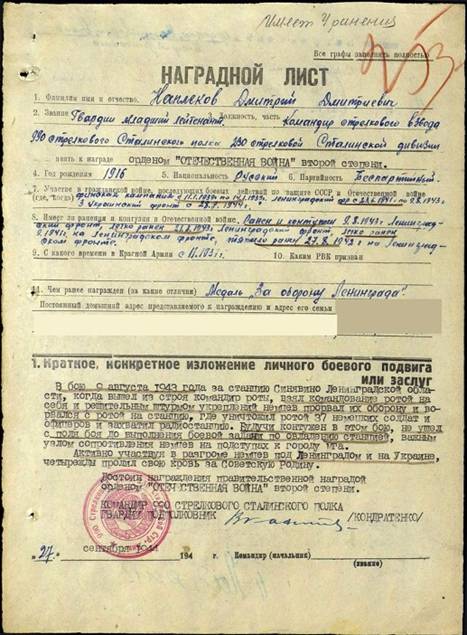 Имеет 4 ранения
Все графы заполнять полностью
253
НАГРАДНОЙ ЛИСТ
1. Фамилия имя и отчество. Дмитрий Дмитриевич
2. Звание Гвардии младший лейтенант 3. Должность, часть Командир стрелкового взвода
990 стрелкового Сталинского полка 230 стрелковой Сталинской дивизии
к награде орденом "ОТЕЧЕСТВЕННАЯ ВОЙНА" второй степени.
4. Год рождения 1916 5. Национальность Русский 6. Партийность Беспартийный
7. Участие в гражданской войне, последующих боевых действий по защите СССР, и Отечественной войне
(где, когда) финская кампания с по Ленинградский фр-т с по 9.8.1943г
3 Украинский фронт с
8. Имеет ли ранения и контузии в Отечественной войне. Ранен и контужен 9.8.1943 Ленинград-
ский фронт, легко ранен Ленинградский фронт, легко ранен
на Ленинградском фронте, ранен 27.8 на Ленинград-
ском фронте.
9. С какого времени в Красной Армии с 10. Каким РВК призван
11. Чем ранее награжден (за какие отличия) Медаль "За оборону Ленинграда".
Постоянный домашний адрес представляемого к награждению и адрес его семьи
1. Краткое, конкретное изложение личного боевого подвига
или заслуг
В бою 9 августа 1943 года за станцию Синявино Ленинградской обла-
сти, когда вышел из строя командир роты, взял командование ротой на
себя и решительным штурмом укреплений немцев прорвал их оборону и во-
рвался с ротой на станцию, где уничтожил ротой 37 немецких солдат и
офицеров и захватил радиостанцию. Будучи контужен в этом бою, не ушел
с поля боя до выполнения боевой задачи по овладению станцией, важным
узлом сопротивления немцев на подступах к городу Мга.
Активно участвуя в разгроме немцев под Ленинградом и на Украине,
четырежды пролил свою кровь за Советскую Родину.
Достоин награждения правительственной наградой
орденом "ОТЕЧЕСТВЕННАЯ ВОЙНА" второй степени.
КОМАНДИР 990 СТРЕЛКОВОГО СТАЛИНСКОГО ПОЛКА
ГВАРДИИ ПОДПОЛКОВНИК /КОНДРАТЕНКО/
"27" сентября 1944 194 г. Командир (начальник)
(звание)